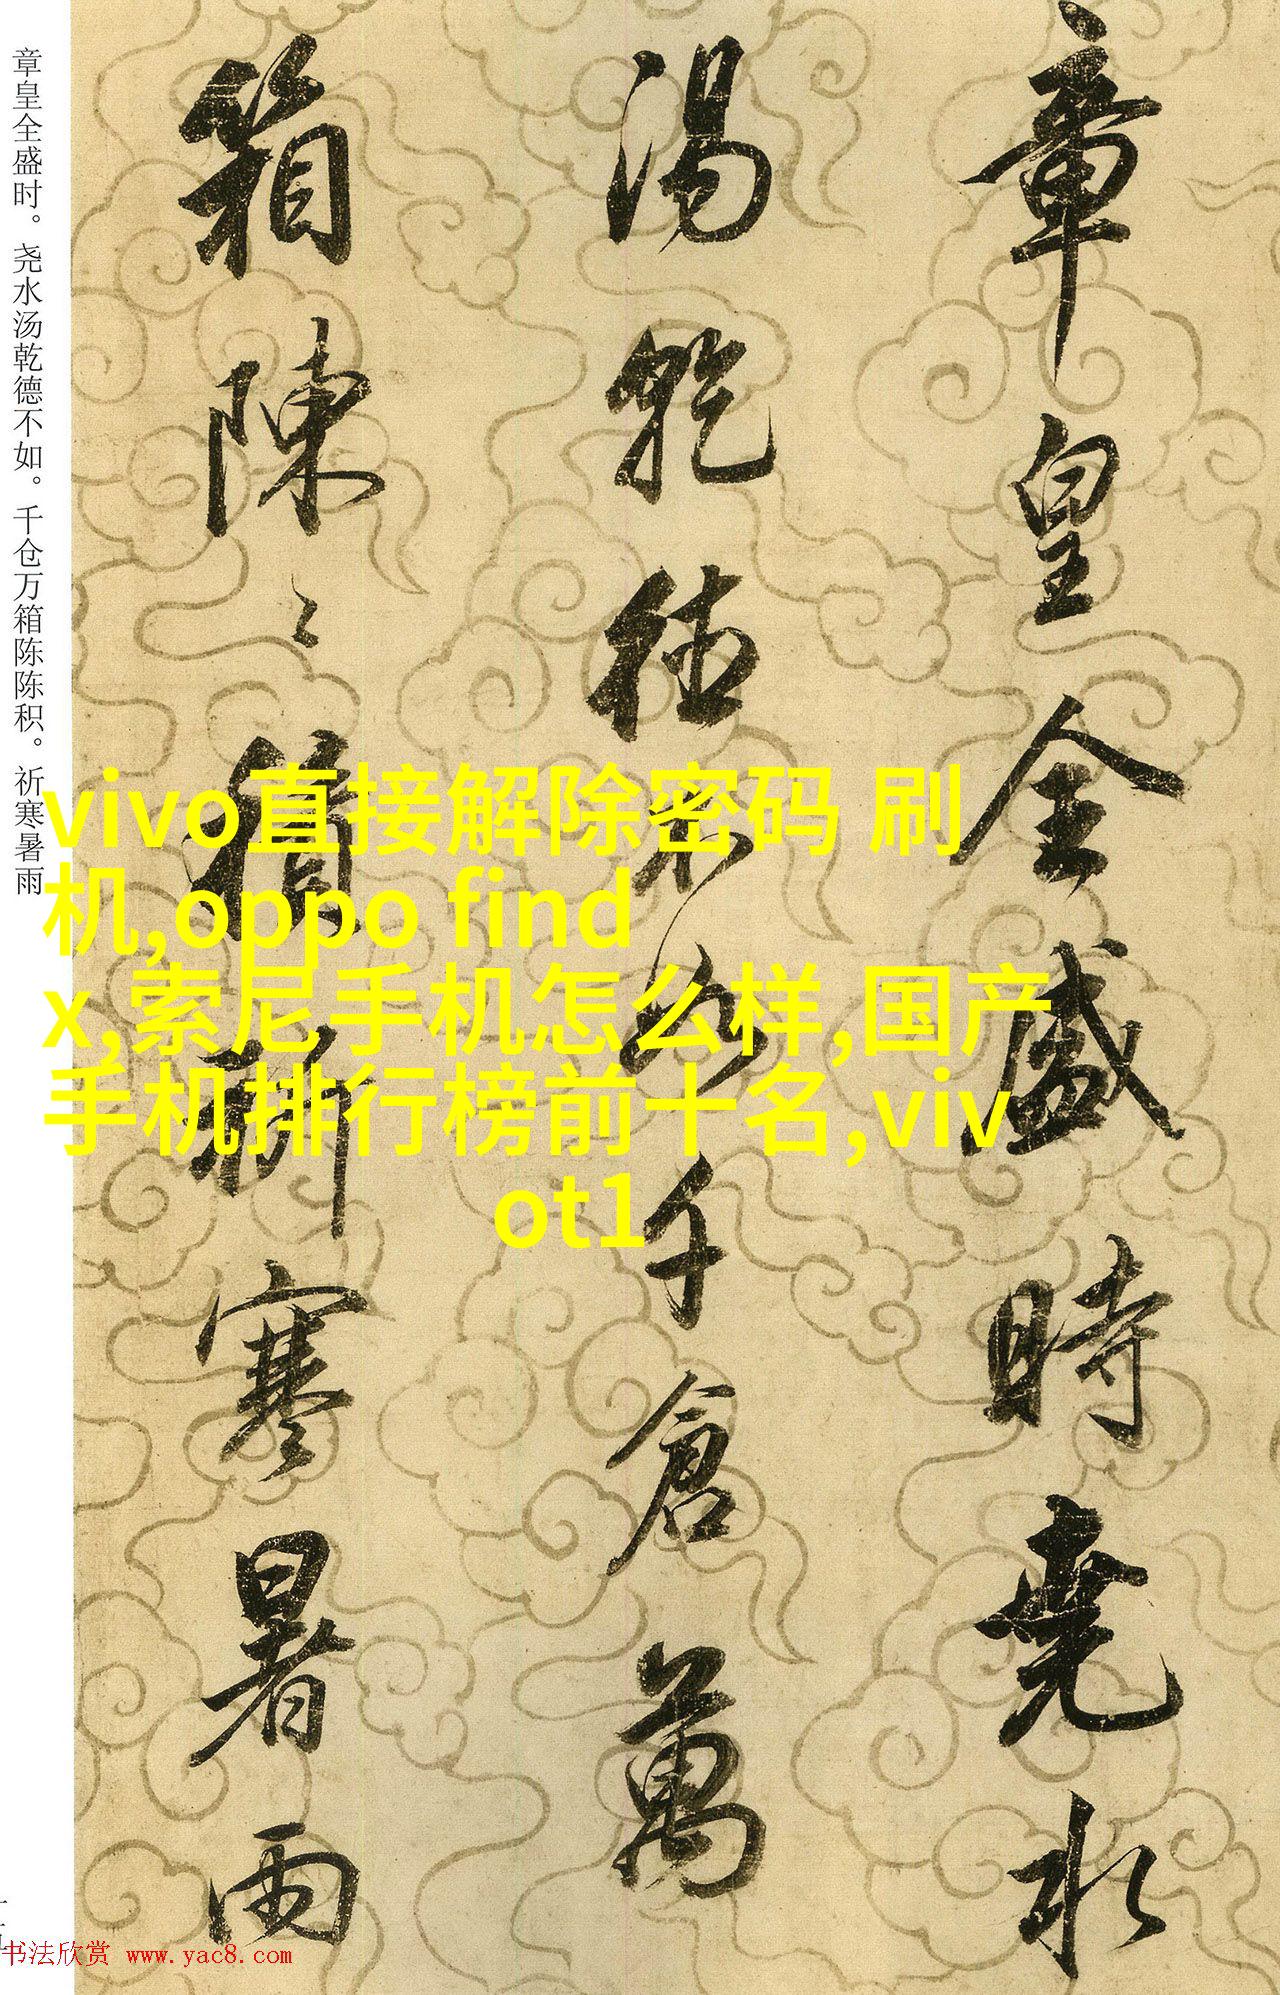 章皇全盛時堯水
湯乾德不如千倉萬
箱陳〻積祈寒暑雨
章皇全盛时。尧水汤乾德不如。千仓万箱陈陈积。祈寒暑雨
vivo直接解除密码 刷
机,oppo find
x,索尼手机怎么样,国产
手机排行榜前十名,viv
ot1
书法欣赏 www.yac8.com